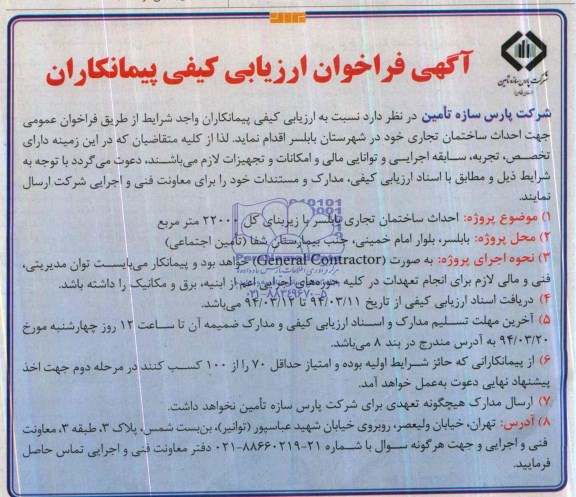 آگهی فراخوان ارزیابی کیفی پیمانکاران
شرکت پارس سازه تأمین
(سهامی خاص)
شرکت پارس سازه تأمین در نظر دارد نسبت به ارزیابی کیفی پیمانکاران واجد شرایط از طریق فراخوان عمومی
جهت احداث ساختمان تجاری خود در شهرستان بابلسر اقدام نماید. لذا از کلیه متقاضیان که در این زمینه دارای
تخصص، تجربه، سابقه اجرایی و توانایی مالی و امکانات و تجهیزات لازم می‌باشند، دعوت می‌گردد با توجه به
شرایط ذیل و مطابق با اسناد ارزیابی کیفی، مدارک و مستندات خود را برای معاونت فنی و اجرایی شرکت ارسال
نمایند.
۱) موضوع پروژه: احداث ساختمان تجاری بابلسر با زیربنای کل ۲۲۰۰۰ متر مربع
۲) محل پروژه: بابلسر، بلوار امام خمینی، جنب بیمارستان شفا (تأمین اجتماعی)
۳) نحوه اجرای پروژه: به صورت (General Contractor) خواهد بود و پیمانکار می‌بایست توان مدیریتی،
فنی و مالی لازم برای انجام تعهدات در کلیه حوزه‌های اجرایی اعم از ابنیه، برق و مکانیک را داشته باشد.
۴) دریافت اسناد ارزیابی کیفی از تاریخ ۹۴/۰۳/۱۱ تا ۹۴/۰۳/۱۳ می‌باشد.
۵) آخرین مهلت تسلیم مدارک و اسناد ارزیابی کیفی و مدارک ضمیمه آن تا ساعت ۱۲ روز چهارشنبه مورخ
۹۴/۰۳/۲۰ به آدرس مندرج در بند ۸ می‌باشد.
۶) از پیمانکارانی که حائز شرایط اولیه بوده و امتیاز حداقل ۷۰ را از ۱۰۰ کسب کنند در مرحله دوم جهت اخذ
پیشنهاد نهایی دعوت به‌عمل خواهد آمد.
۷) ارسال مدارک هیچگونه تعهدی برای شرکت پارس سازه تأمین نخواهد داشت.
۸) آدرس: تهران، خیابان ولیعصر، روبروی خیابان شهید عباسپور (توانیر)، بن‌بست شمس، پلاک ۳، طبقه ۳، معاونت
فنی و اجرایی و جهت هرگونه سوال با شماره ۲۱-۸۸۶۶۰۲۱۹-۰۲۱ دفتر معاونت فنی و اجرایی تماس حاصل
فرمایید.